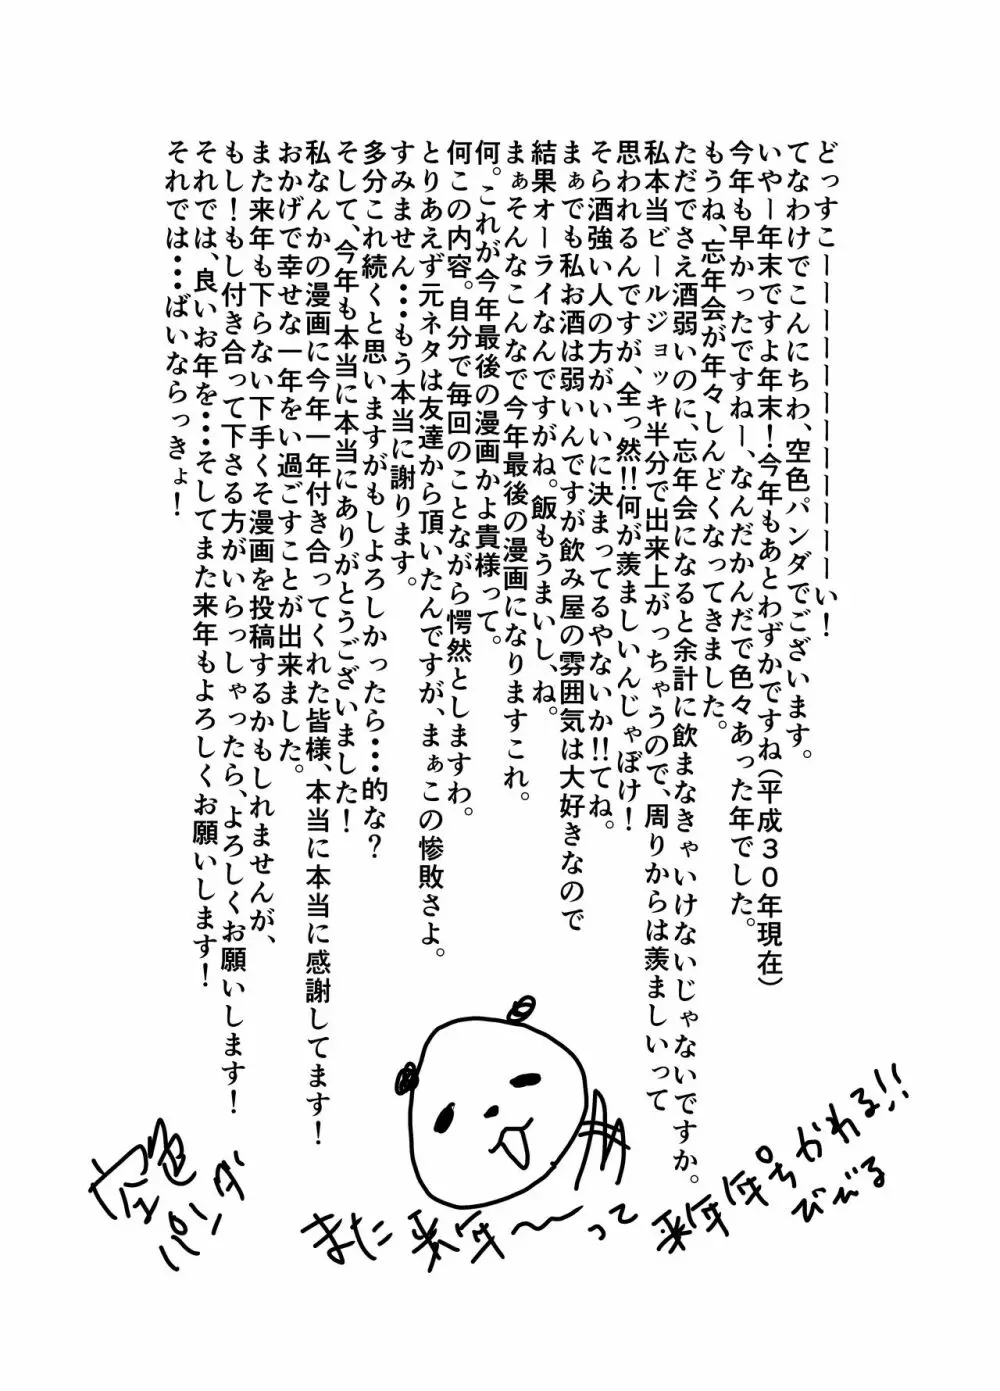 どっすこーーーーーーーーーーーい！
てなわけでこんにちわ、空色パンダでございます。
いやー年末ですよ年末！今年もあとわずかですね（平成３０年現在）
今年も早かったですねー、なんだかんだで色々あった年でした。
もうね、忘年会が年々しんどくなってきました。
ただでさえ酒弱いのに、忘年会になると余計に飲まなきゃいけないじゃないですか。
私本当ビールジョッキ半分で出来上がっちゃうので、周りからは羨ましいって
思われるんですが、全っ然!!何が羨ましいんじゃぼけ！
そら酒強い人の方がいいに決まってるやないか!!てね。
まぁでも私お酒は弱いんですが飲み屋の雰囲気は大好きなので
結果オーライなんですがね。飯もうまいし、ね。
まぁそんなこんなで今年最後の漫画になりますこれ。
何。これが今年最後の漫画かよ貴様って。
何この内容。自分で毎回のことながら愕然としますわ。
とりあえず元ネタは友達から頂いたんですが、まぁこの惨敗さよ。
すみません・・・もう本当に謝ります。
多分これ続くと思いますがもしよろしかったら・・・的な？
そして、今年も本当に本当にありがとうございました！
私なんかの漫画に今年一年付き合ってくれた皆様、本当に本当に感謝してます！
おかげで幸せな一年をい過ごすことが出来ました。
また来年も下らない下手くそ漫画を投稿するかもしれませんが、
もし！もし付き合って下さる方がいらっしゃったら、よろしくお願いします！
それでは、良いお年を・・・そしてまた来年もよろしくお願いします！
それでは・・・ばいならっきょ！
また来年〜って
来年年号かわる!!
びびる
空色
パンダ